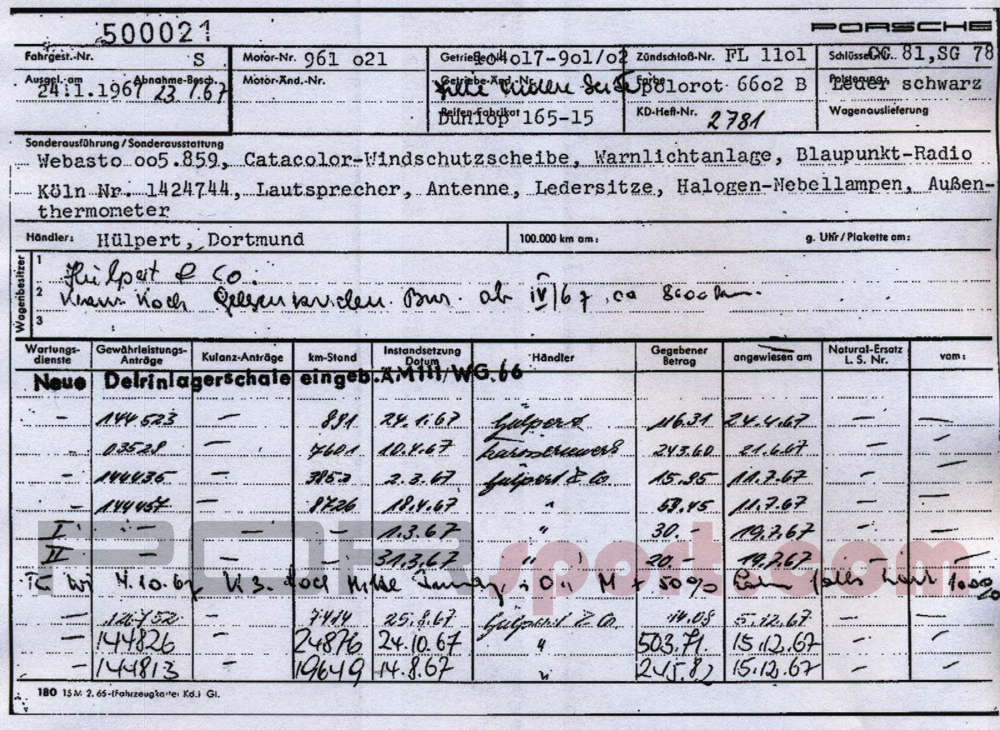 500021
PORSCHE
Fahrgest.-Nr. S
Motor-Nr. 961 o21
Getriebe-Nr. 9o4o17-9o1/o2
Zündschloß-Nr. FL 11o1
Schlüssel CG 81, SG 78
Ausgel. am 24.1.1967
Abnahme-Besch. 23.1.67
Motor-Änd.-Nr.
Getriebe-Änd.-Nr.
Farbe polorot 66o2 B
Polsterung Leder schwarz
Reifen-Fabrikat Dunlop 165-15
KD-Heft-Nr. 2781
Wagenauslieferung
Sonderausführung / Sonderausstattung
Webasto oo5.859, Catacolor-Windschutzscheibe, Warnlichtanlage, Blaupunkt-Radio
Köln Nr. 1424744, Lautsprecher, Antenne, Ledersitze, Halogen-Nebellampen, Außen-
thermometer
Händler: Hülpert, Dortmund
100.000 km am:
g. Uhr/Plakette am:
Wagenbesitzer
1 Hülpert & Co.
2 Koch ab IV/67, ca 8600 km
3
Wartungs-dienste Gewährleistungs-Anträge Kulanz-Anträge km-Stand Instandsetzung Datum Händler Gegebener Betrag angewiesen am Natural-Ersatz L. S. Nr. vom:
Neue Delrinlagerschale eingeb. ÄM111/WG.66
– 144523 – 891 24.1.67 Hülpert 116.31 24.4.67 – –
– 03528 – 7601 10.4.67 243.60 21.6.67 – –
– 144436 – 3853 2.3.67 Hülpert & Co 15.95 11.7.67 – –
– 144457 – 8726 18.4.67 " 59.45 11.7.67 – –
I – – – 1.3.67 " 30.- 19.7.67 – –
II – – – 31.3.67 " 20.- 19.7.67 – –
4.10.67 50%
– 126752 – 7414 25.8.67 Hülpert & Co 14.08 5.12.67 – –
– 144826 – 24876 24.10.67 " 503.71 15.12.67 – –
– 144813 – 19649 14.8.67 " 245.82 15.12.67 – –
PORsport.com
180 15 M 2. 65 - (Fahrzeugkartei Kd.) Gl.